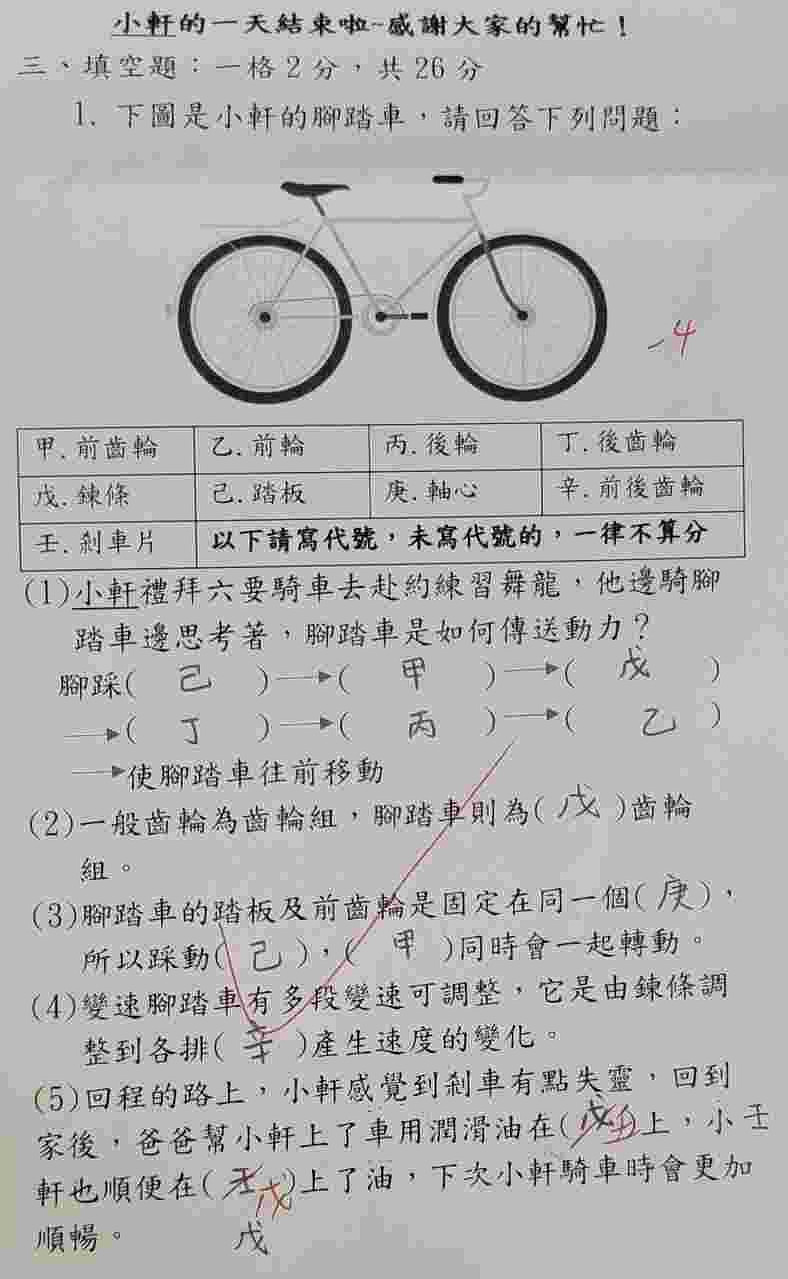 小軒的一天結束啦~感謝大家的幫忙！
三、填空題：一格2分，共26分
1. 下圖是小軒的腳踏車，請回答下列問題：
-4
甲.前齒輪 乙.前輪 丙.後輪 丁.後齒輪
戊.鍊條 己.踏板 庚.軸心 辛.前後齒輪
壬.剎車片 以下請寫代號，未寫代號的，一律不算分
(1)小軒禮拜六要騎車去赴約練習舞龍，他邊騎腳
踏車邊思考著，腳踏車是如何傳送動力？
腳踩( 己 )→( 甲 )→( 戊 )
→( 丁 )→( 丙 )→( 乙 )
→使腳踏車往前移動
(2)一般齒輪為齒輪組，腳踏車則為( 戊 )齒輪
組。
(3)腳踏車的踏板及前齒輪是固定在同一個( 庚 )，
所以踩動( 己 )，( 甲 )同時會一起轉動。
(4)變速腳踏車有多段變速可調整，它是由鍊條調
整到各排( 辛 )產生速度的變化。
(5)回程的路上，小軒感覺到剎車有點失靈，回到
家後，爸爸幫小軒上了車用潤滑油在( 戊壬 )上，小 壬
軒也順便在( 壬戊 )上了油，下次小軒騎車時會更加
順暢。 戊